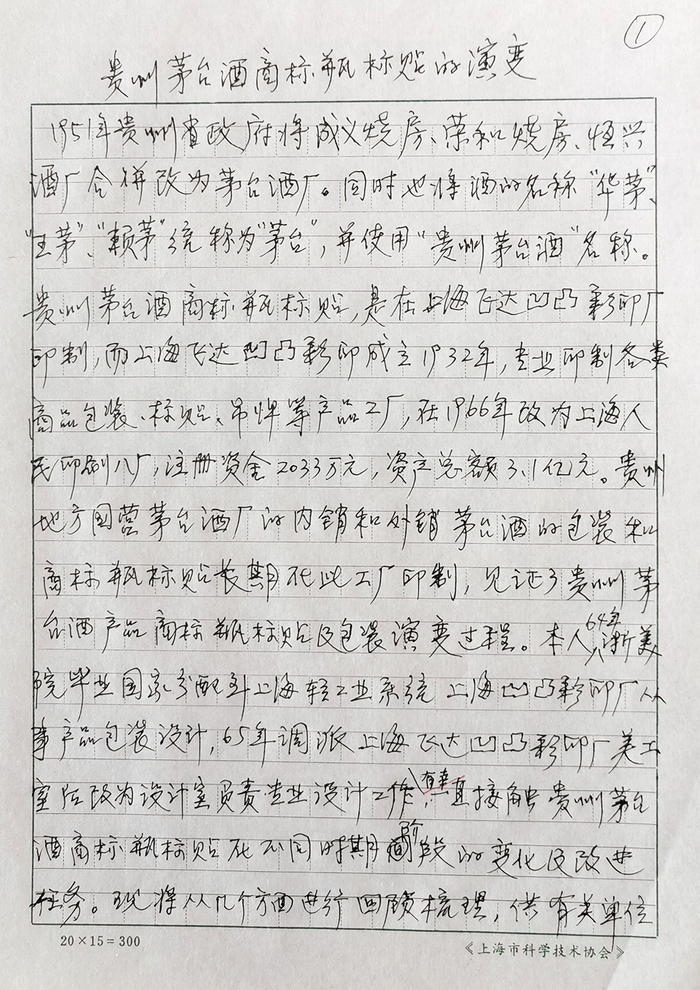 ①
贵州茅台酒商标瓶标贴的演变
1951年贵州省政府将成义烧房、荣和烧房、恒兴
酒厂合併改为茅台酒厂。同时也将酒的名称“华茅”、
“王茅”、“赖茅”统称为“茅台”,并使用“贵州茅台酒”名称。
贵州茅台酒商标瓶标贴,是在上海飞达凹凸彩印厂
印制,而上海飞达凹凸彩印成立1932年,专业印制各类
商品包装、标贴、吊牌等产品工厂,在1966年改为上海人
民印刷八厂,注册资金2033万元,资产总额3.1亿元。贵州
地方国营茅台酒厂的内销和外销茅台酒的包装和
商标瓶标贴长期在此工厂印制,见证了贵州茅
台酒产品商标瓶标贴及包装演变过程。本人64年浙美
院毕业国家分配到上海轻工业系统上海凹凸彩印厂从
事产品包装设计,65年调派上海飞达凹凸彩印厂美工
室后改为设计室负责专业设计工作,有幸直接接触贵州茅台
酒商标瓶标贴在不同时期阶段的变化及改进
任务。现将从几个方面进行回顾梳理,供有关单位
20×15=300
《上海市科学技术协会》